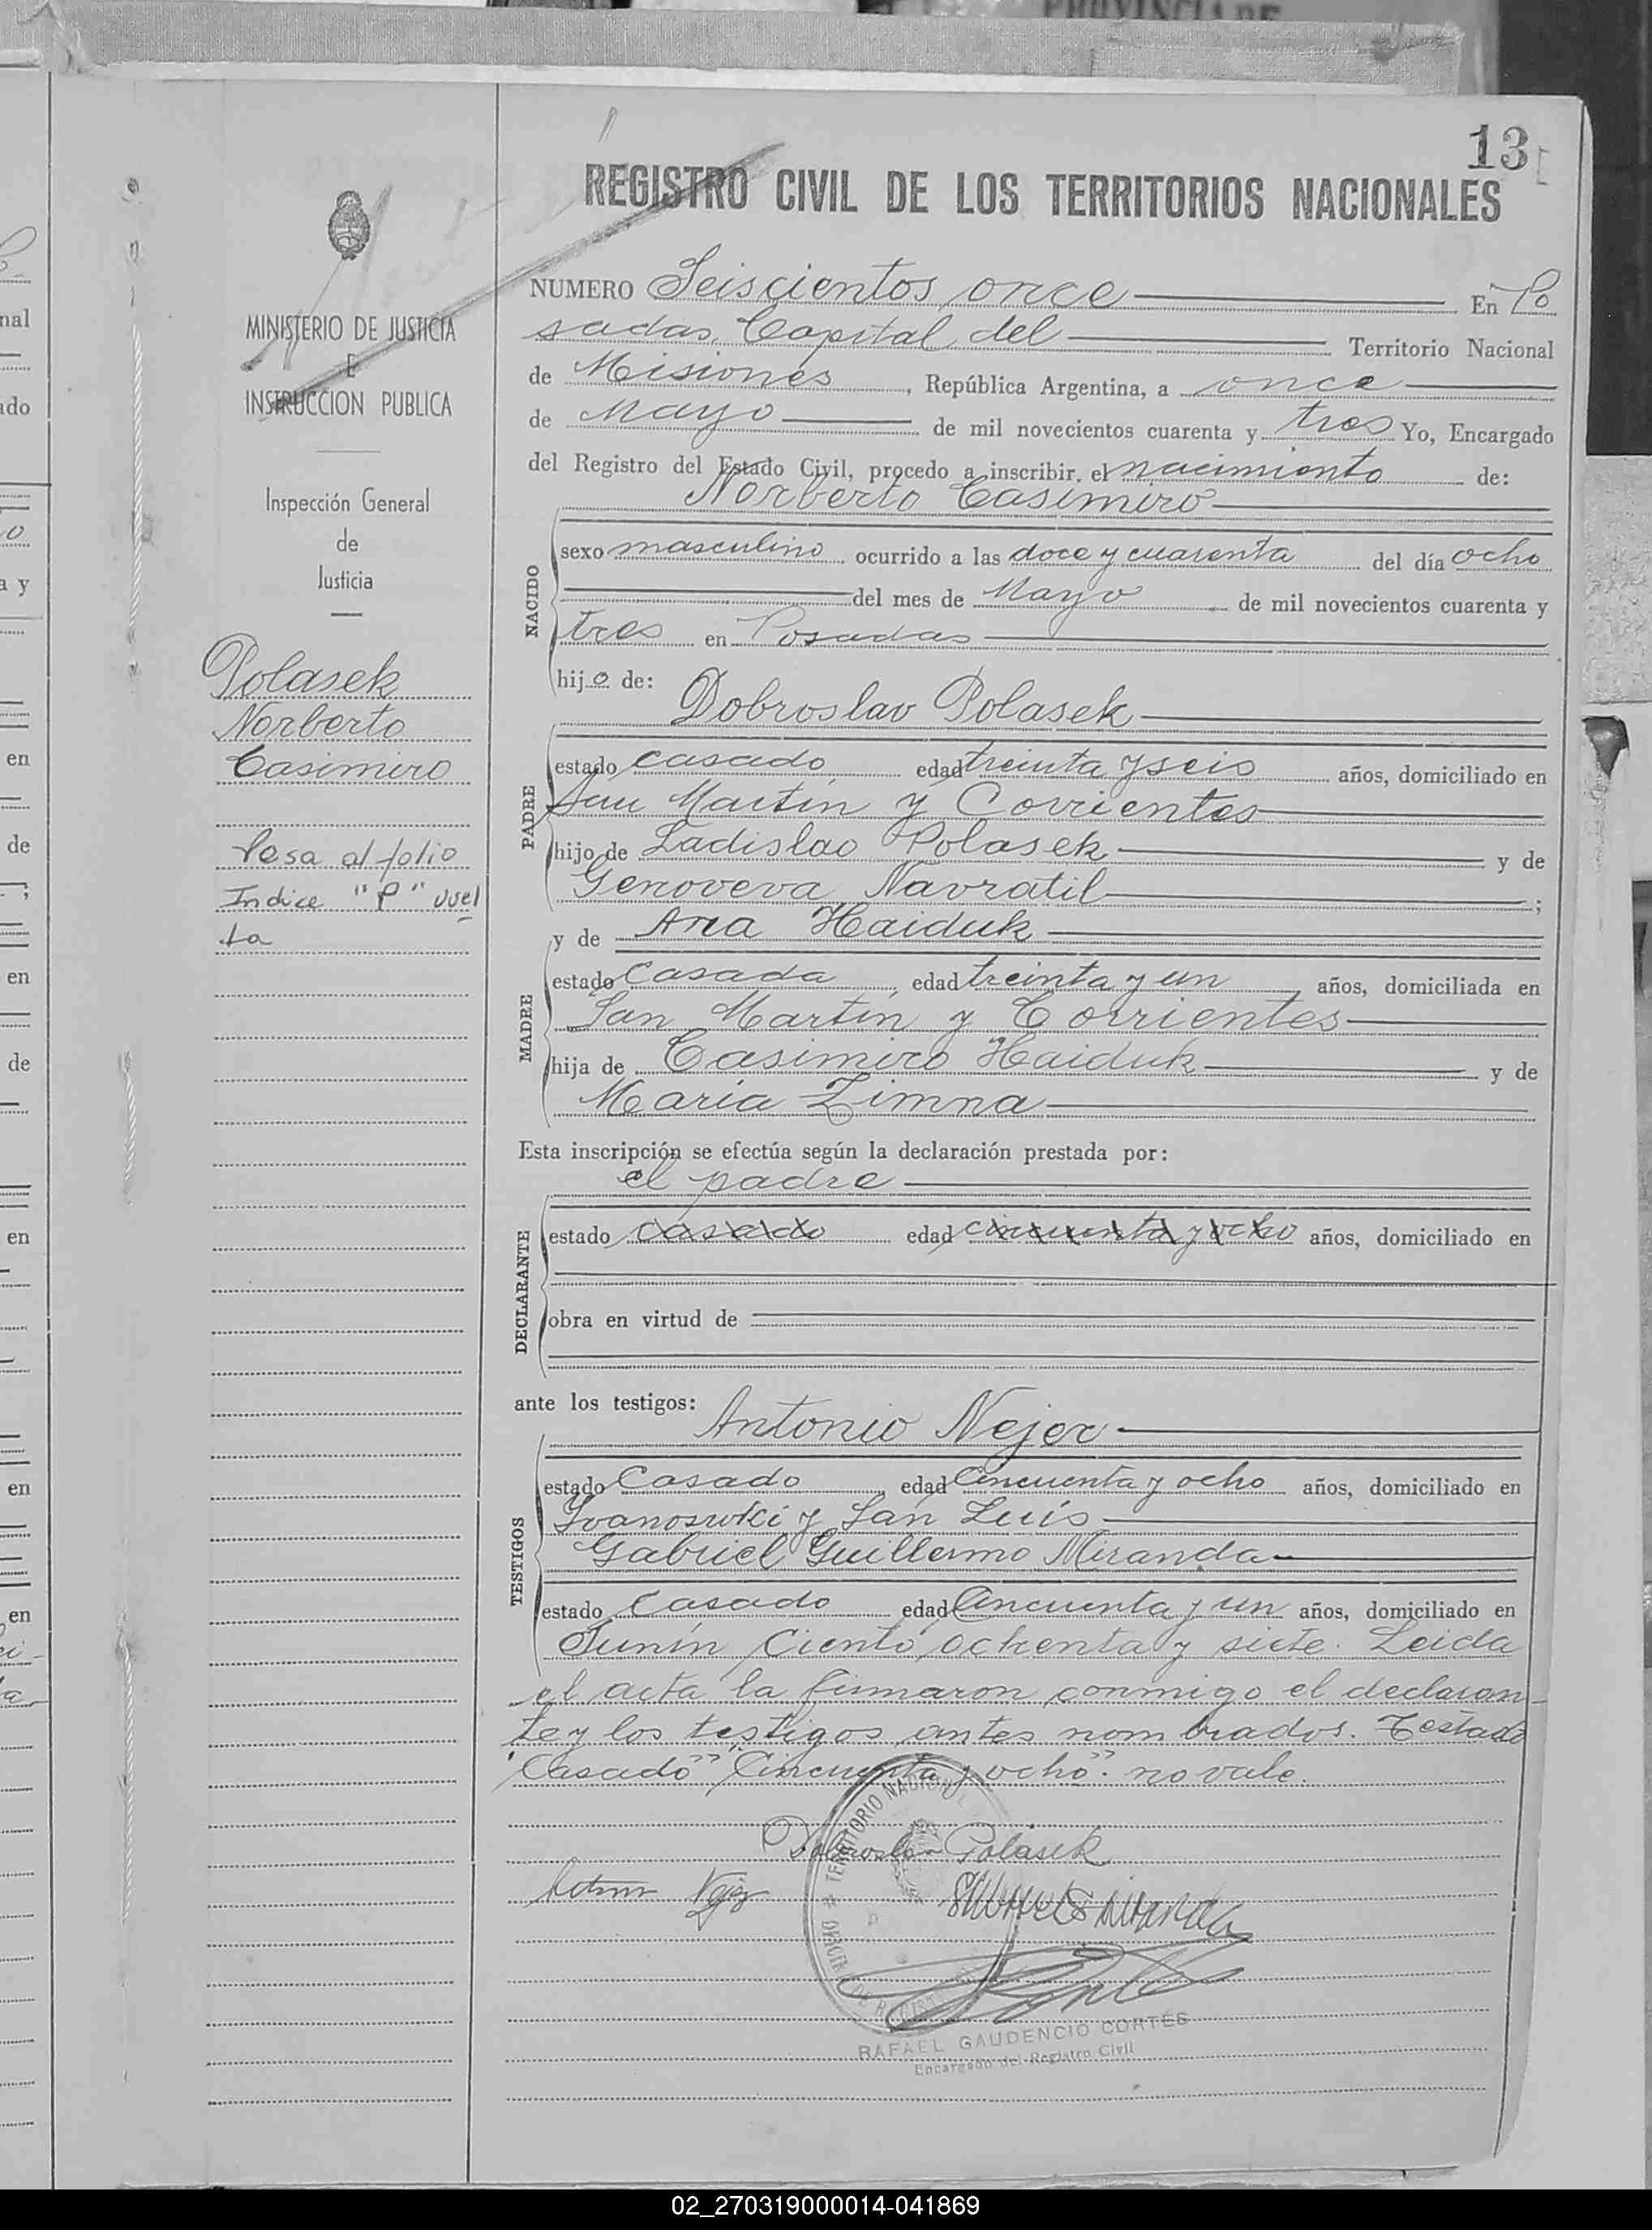 PROVINCIA DE
13
REGISTRO CIVIL DE LOS TERRITORIOS NACIONALES
MINISTERIO DE JUSTICIA
E
INSTRUCCION PUBLICA
Inspección General
de
Justicia
Polasek
Norberto
Casimiro
Pasa al folio
Indice "P" vuel
ta
NUMERO Seiscientos once En Po
sadas, Capital del Territorio Nacional
de Misiones, República Argentina, a once
de Mayo de mil novecientos cuarenta y tres Yo, Encargado
del Registro del Estado Civil, procedo a inscribir, el nacimiento de:
Norberto Casimiro
NACIDO
sexo masculino ocurrido a las doce y cuarenta del día ocho
del mes de Mayo de mil novecientos cuarenta y
tres en Posadas
hijo de:
Dobroslav Polasek
PADRE
estado casado, edad treinta y seis años, domiciliado en
San Martín y Corrientes
hijo de Ladislao Polasek y de
Genoveva Navratil;
y de Ana Haiduk
MADRE
estado Casada, edad treinta y un años, domiciliada en
San Martín y Corrientes
hija de Casimiro Haiduk y de
María Zimna
Esta inscripción se efectúa según la declaración prestada por:
el padre
DECLARANTE
estado casado edad cincuenta y ocho años, domiciliado en
obra en virtud de
ante los testigos:
Antonio Nejer
TESTIGOS
estado Casado, edad Cincuenta y ocho años, domiciliado en
Ivanoswki y San Luís
Gabriel Guillermo Miranda
estado Casado edad Cincuenta y un años, domiciliado en
Junín Ciento ochenta y siete. Leida
el acta la firmaron conmigo el declaran-
te y los testigos antes nombrados. Testado
"Casado" "Cincuenta y ocho": no vale.
Dobroslav Polasek
TERRITORIO NACIONAL
RAFAEL GAUDENCIO CORTÉS
Encargado del Registro Civil
02_270319000014-041869